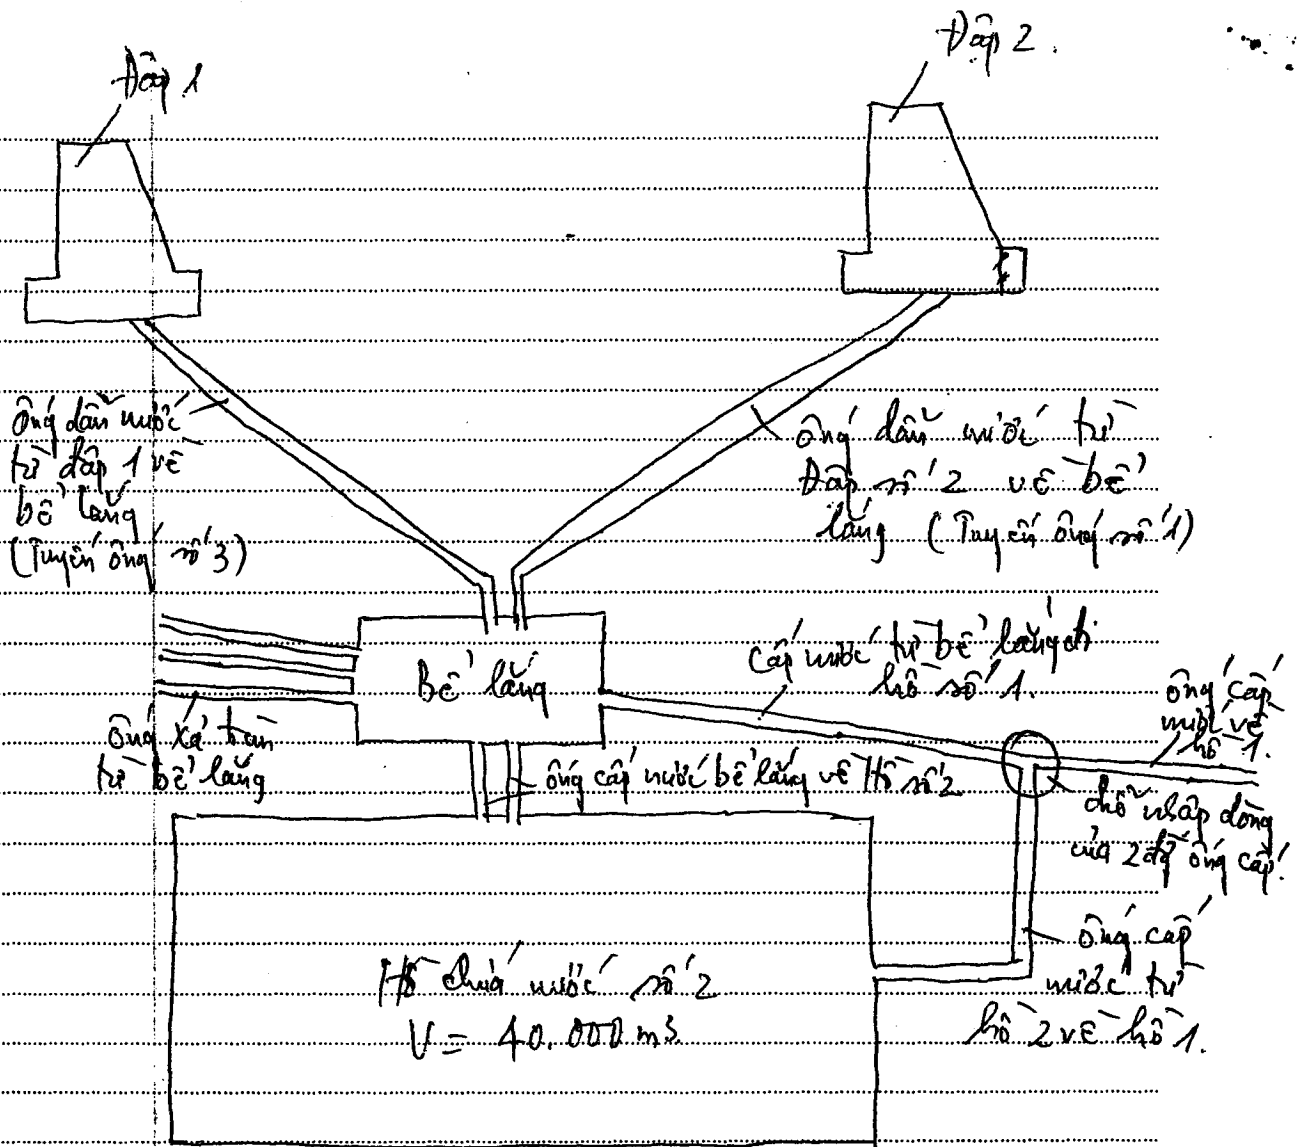 Đập 1
Đập 2
ống dẫn nước
từ đập 1 về
bể lắng
(Tuyến ống số 3)
ống dẫn nước từ
Đập số 2 về bể
lắng (Tuyến ống số 1)
Bể lắng
cấp nước từ bể lắng đi
hồ số 1.
ống cấp
nước về
hồ 1.
ống xả tràn
từ bể lắng
ống cấp nước bể lắng về Hồ số 2
chỗ nhập dòng
của 2 ống cấp.
ống cấp
nước từ
hồ 2 về hồ 1.
Hồ chứa nước số 2
V = 40.000 m3.